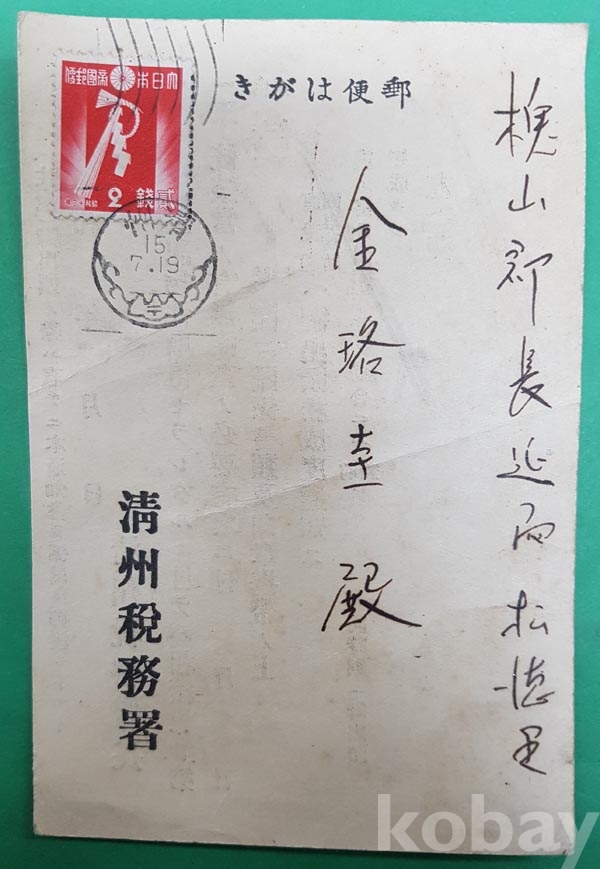 郵便はがき
大日本帝國郵便
貳錢
2
清州
15
7.19
槐山郡長延面松德里
金珞圭殿
清州稅務署
kobay